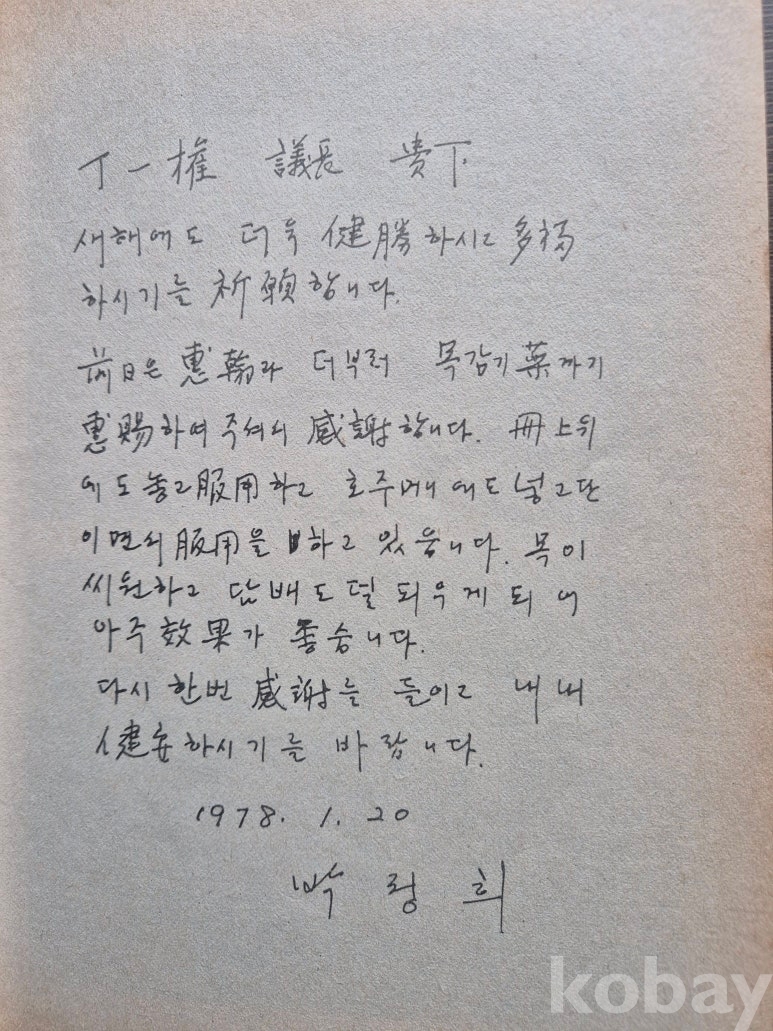 丁一權 議長 貴下
새해에도 더욱 健勝하시고 多福
하시기를 祈願합니다.
前日은 惠翰과 더부러 목감기 藥까지
惠賜하여 주셔서 感謝합니다. 冊上위
에도 놓고 服用하고 호주머니에도 넣고 단
이면서 服用을 하고 있읍니다. 목이
씨원하고 담배도 덜 피우게 되어
아주 效果가 좋습니다.
다시 한번 感謝를 들이고 내내
健安하시기를 바랍니다.
1978. 1. 20
박정희
kobay